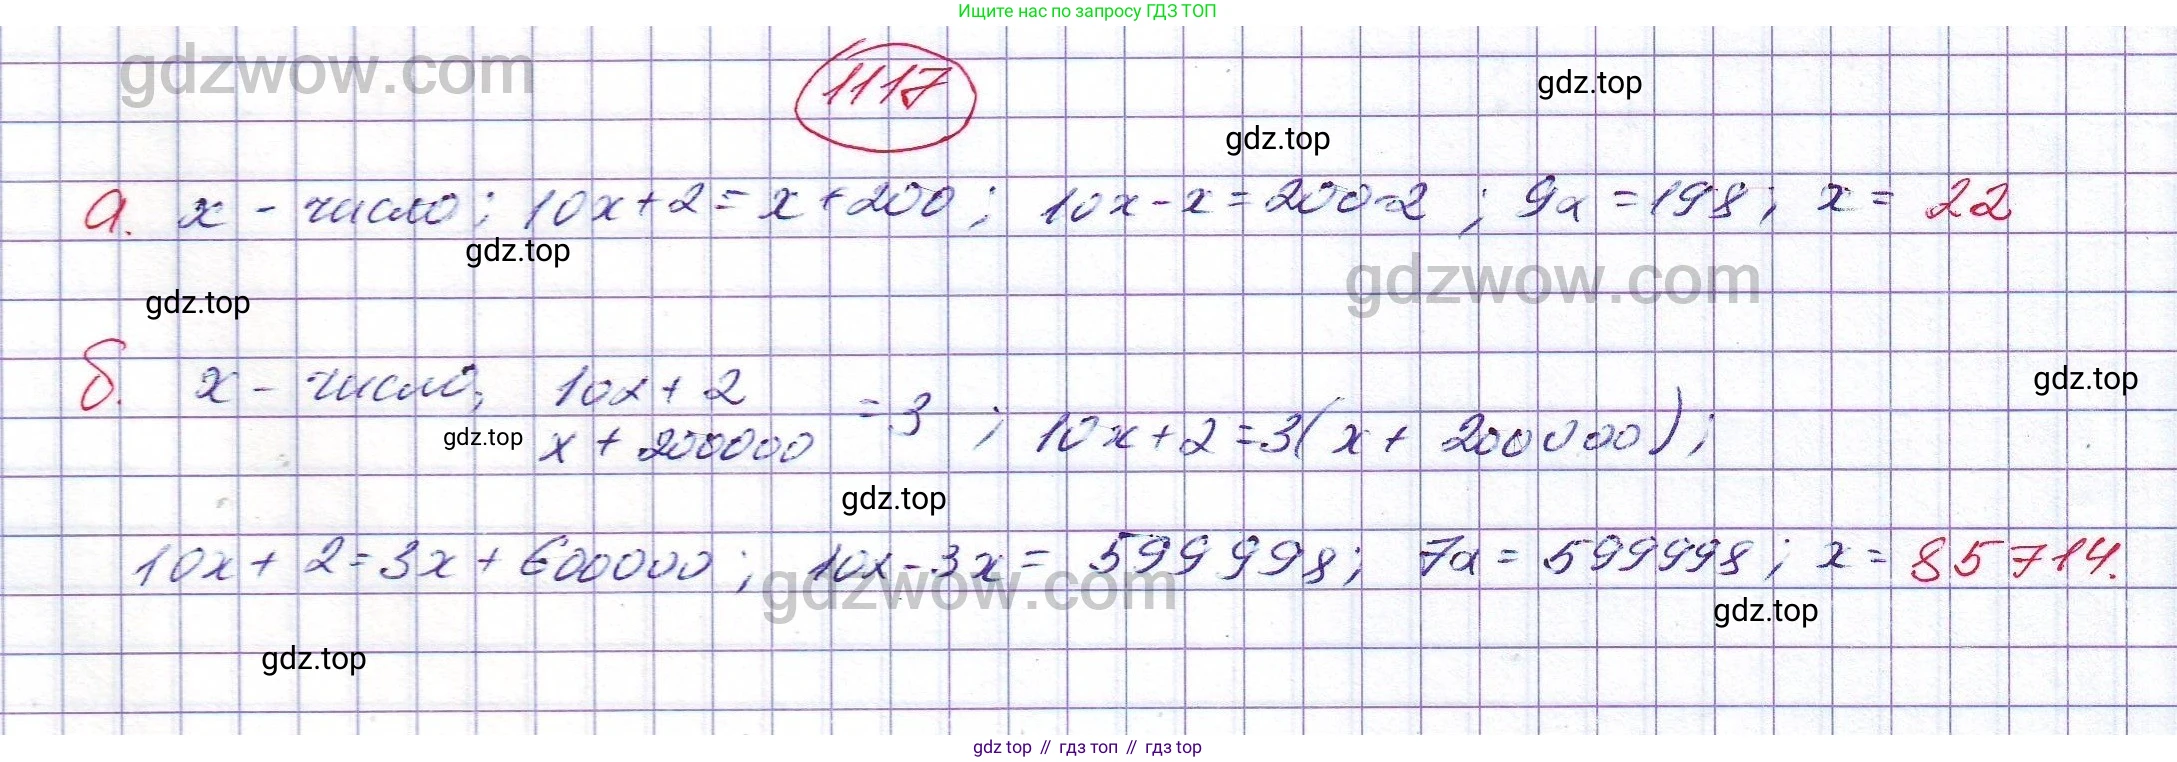 Ищите нас по запросу ГДЗ ТОП
gdzwow.com
1117
gdz.top
gdz.top
а. x - число; 10x+2=x+200; 10x-x=200-2; 9x=198; x= 22
gdz.top
gdzwow.com
gdz.top
б. x - число; 10x+2
x+200000 =3; 10x+2=3(x+ 200000);
gdz.top
gdz.top
gdz.top
10x+2=3x+600000; 10x-3x= 599998; 7x=599998; x= 85714.
gdzwow.com
gdz.top
gdz.top
gdz top // гдз топ // гдз top